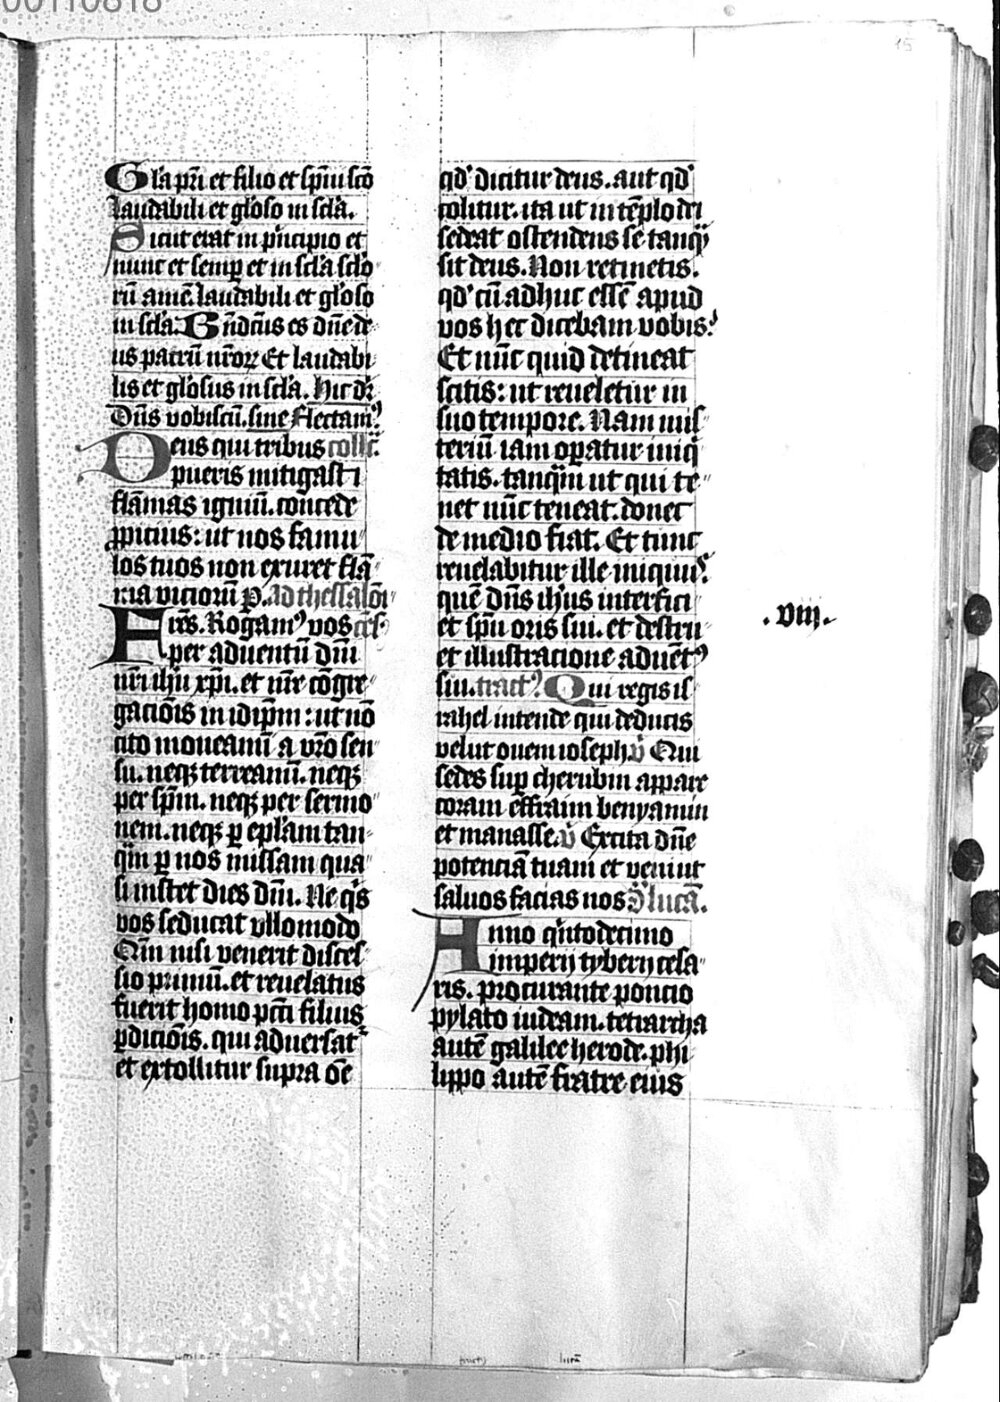 00110818
15
Gl'a pri et filio et spiui sco
laudabili et gl'oso in scl'a.
Sicut erat in pncipio et
nunc et semp et in scl'a sclo
rū amē laudabili et gl'oso
in scl'a. Bndcus es dne de
us patrū nror Et laudabi
lis et gl'osus in scl'a. Hic dr
Dns vobiscū. sine Flectam'
Deus qui tribus coll'c.
pueris mitigasti
flāmas igniū. concede
ppicius: ut nos famu
los tuos non exuret flā
ma viciorū P. ad thessalōn
Fres. Rogam' vos
per aduentū dni
nri ihu xpi. et nre cōgre
gacōis in idipm: ut nō
cito moueamī a vro sen
su. neqz terreamī. neqz
per spm. neqz per sermo
nem. neqz p eplam tan
qm p nos missam qua
si instet dies dni. Ne qs
vos seducat vllomodo
Qm nisi venerit disces
sio primū. et reuelatus
fuerit homo pcti filius
pdicōis. qui aduersat
et extollitur supra oē
qd' dicitur deus. aut qd'
colitur. ita ut in tēplo dei
sedeat ostendens se tanq
sit deus. Non retinetis.
qd' cū adhuc essē apud
vos hec dicebam vobis:
Et nūc quid detineat
scitis: ut reueletur in
suo tempore. Nam mis
teriū iam opatur iniq
tatis. tanqm ut qui te
net nūc teneat. donec
de medio fiat. Et tunc
reuelabitur ille iniquus.
quē dns ihs interfici
et spu oris sui. et destru
et illustracione aduēt'
sui. tract' Qui regis is
rahel intende qui deducis
velut ouem ioseph. v Qui
sedes sup cherubin appare
coram effraim benyamin
et manasse. v Excita dne
potenciā tuam et veni ut
saluos facias nos lucā.
Anno qntodecimo
imperij tyberij cesa
ris. procurante poncio
pylato iudeam. tetrarcha
autē galilee herode. phi
lippo autē fratre eius
.viij.